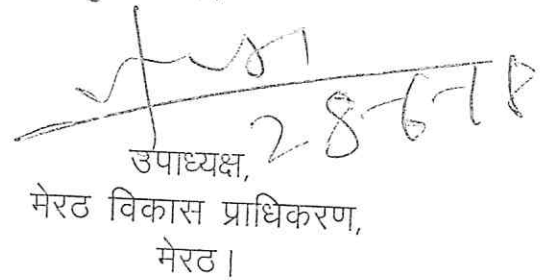 28-6-18
उपाध्यक्ष,
मेरठ विकास प्राधिकरण,
मेरठ।